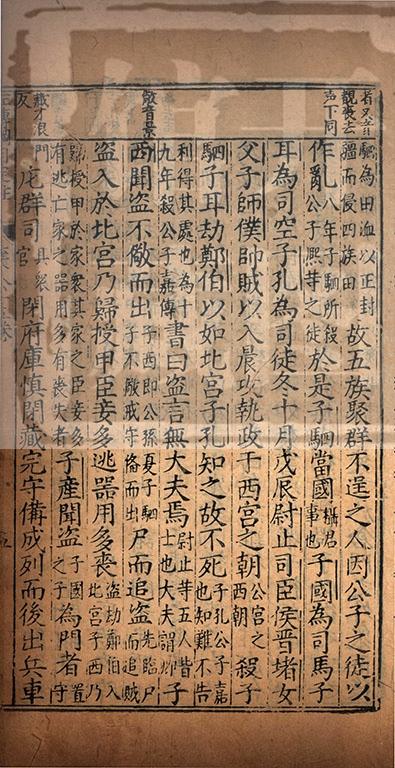 駟為田洫以正封疆而侵四族田故五族聚群不逞之人因公子之徒以
作亂八年子駟所殺公子熙等之徒於是子駟當國攝君事也子國為司馬子
耳為司空子孔為司徒冬十月戊辰尉止司臣侯晉堵女
父子師僕帥賊以入晨攻執政于西宮之朝公宮之西朝殺子
駟子耳劫鄭伯以如北宮子孔知之故不死子孔公子嘉也知難不告
利得其處也為十九年殺公子嘉傳書曰盜言無大夫焉尉止等五人皆士也大夫謂卿子
儆音景
西聞盜不儆而出子西即公孫夏子駟子不儆戒守備而出尸而追盜先臨尸而追賊
盜入於北宮乃歸授甲臣妾多逃器用多喪盜劫鄭伯入北宮子西乃
歸授甲於家衆其家之臣妾多有逃亡家之器用多有喪失者子產聞盜子國之子為門者置守
藏才浪反
門庀群司具衆官閉府庫慎閉藏完守備成列而後出兵車